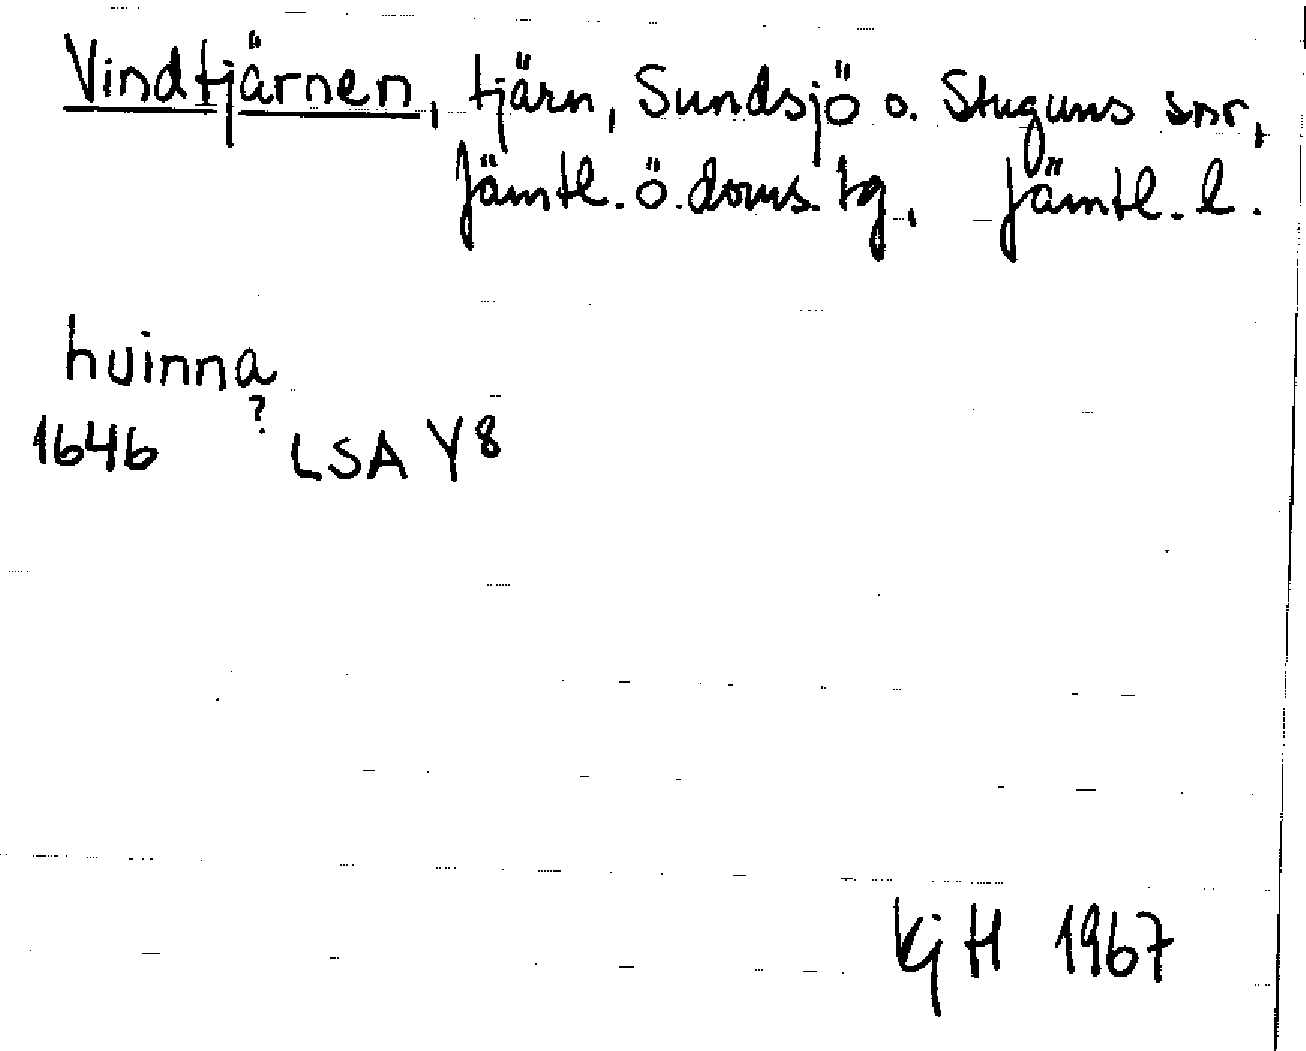 Vindtjärnen, tjärn, Sundsjö o. Stuguns snr,
Jämtl. ö. doms. tg., Jämtl. l.
huinna
?
1646 LSA Y8
KjH 1967